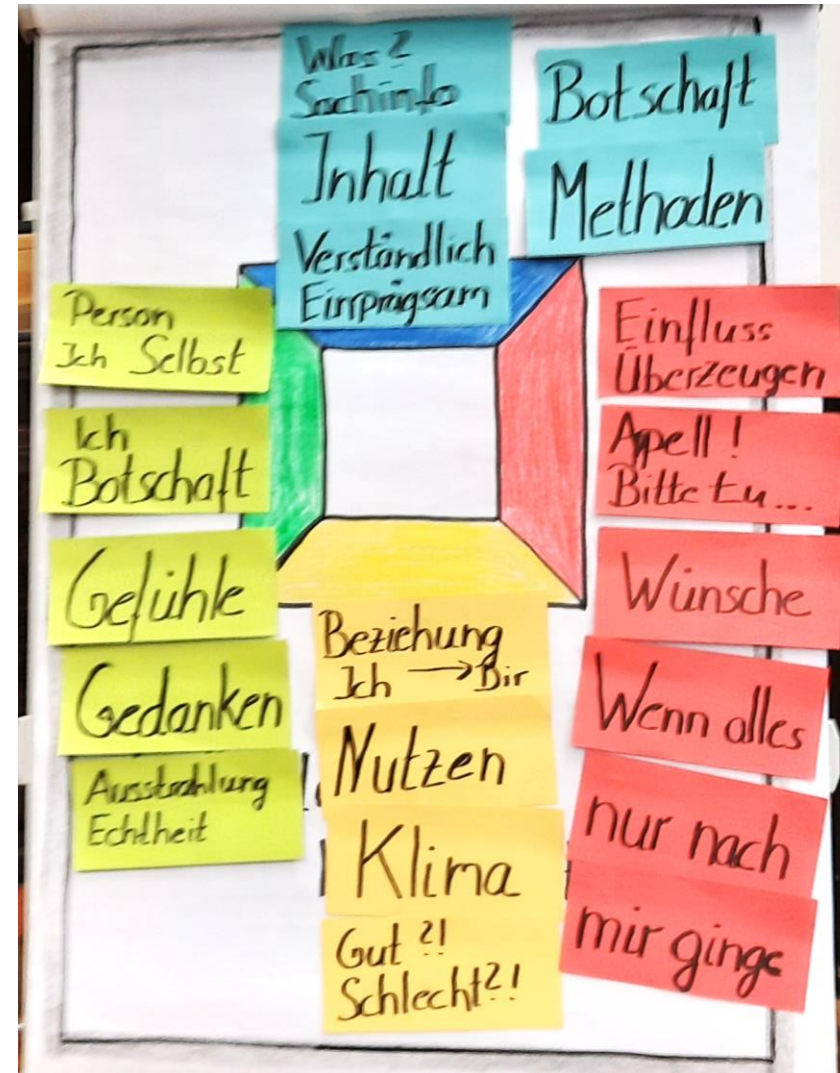 Was?
Sachinfo
Inhalt
Verständlich
Einprägsam
Botschaft
Methoden
Person
Ich Selbst
Ich
Botschaft
Gefühle
Gedanken
Ausstrahlung
Echtheit
Beziehung
Ich → Dir
Nutzen
Klima
Gut ?!
Schlecht?!
Einfluss
Überzeugen
Apell !
Bitte tu...
Wünsche
Wenn alles
nur nach
mir ginge